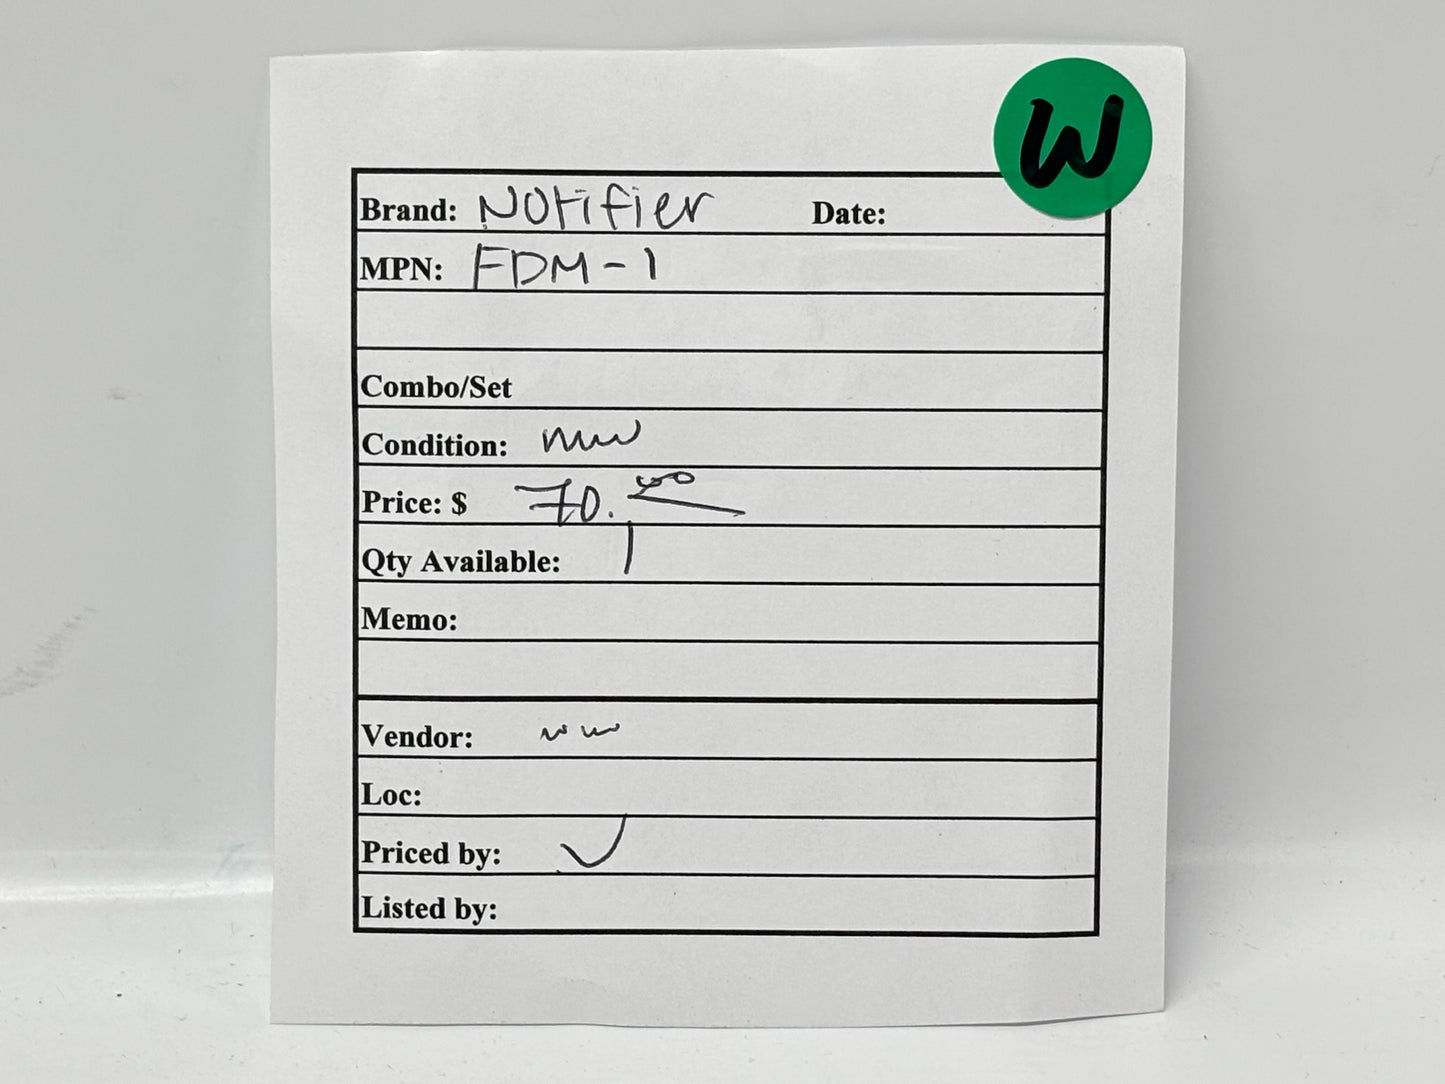 W
Brand: Notifier Date:
MPN: FDM-1
Combo/Set
Condition:
Price: $ 70.00
Qty Available: 1
Memo:
Vendor:
Loc:
Priced by:
Listed by: